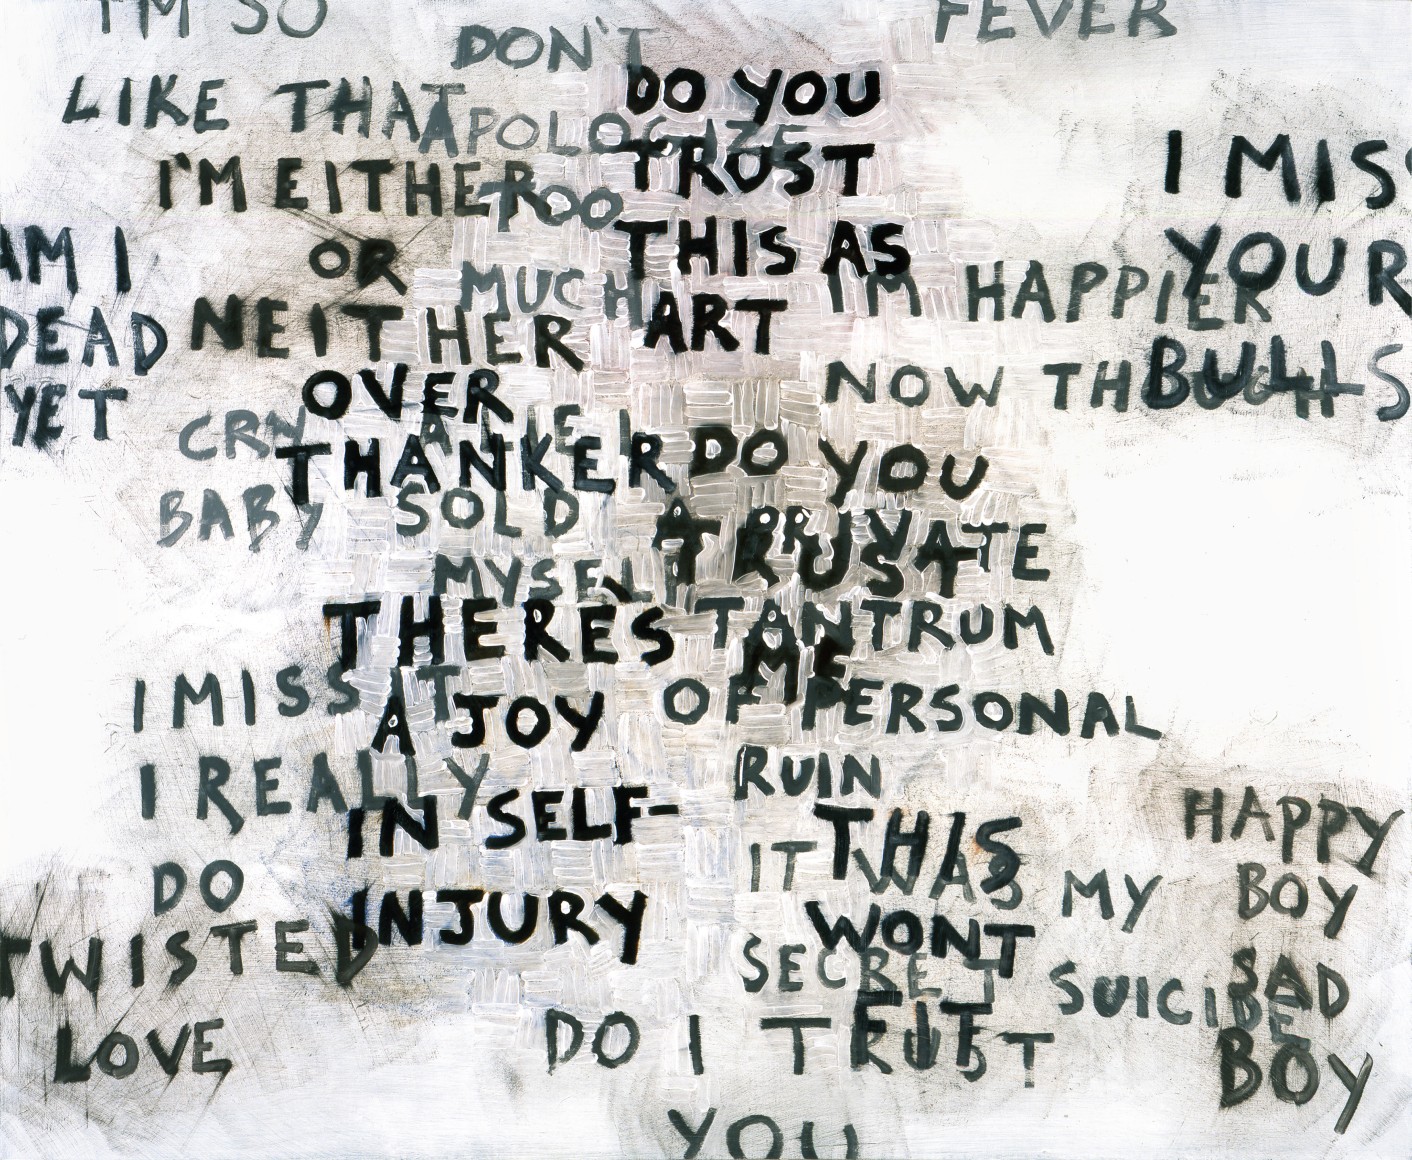 I'M SO
FEVER
DON'T
LIKE THAT
APOLOGIZE
DO YOU
TRUST
THIS AS
ART
I'M EITHER
OR
NEITHER
TOO
MUCH
I MISS
YOUR
BULLS
AM I
DEAD
YET
I'M HAPPIER
NOW THOUGH
OVER
THANKER
CRY
BABY
SOLD
MYSELF
DO YOU
TRUST
ME
A PRIVATE
TANTRUM
OF PERSONAL
RUIN
THERES
A JOY
IN SELF-
INJURY
I MISS IT
I REALLY
DO
TWISTED
LOVE
THIS
WONT
FIT
IT WAS MY
SECRET SUICIDE
HAPPY
BOY
SAD
BOY
DO I TRUST
YOU